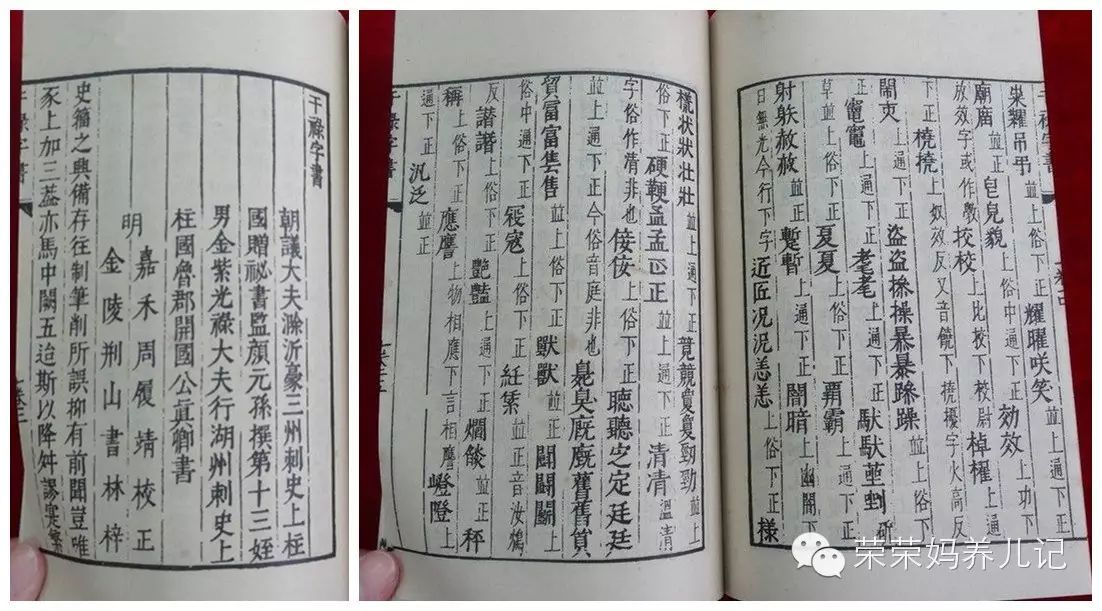 干祿字書
朝議大夫滁沂豪三州刺史上柱
國贈祕書監顏元孫撰第十三姪
男金紫光祿大夫行湖州刺史上
柱國魯郡開國公真卿書
明
嘉禾周履靖校正
金陵荆山書林梓
史籀之興備存往制筆削所誤抑有前聞豈唯
豕上加三蓋亦馬中闕五迨斯以降舛謬寔繁
干祿字書
糶吊弔並上俗下正耀曜咲笑並上通下正
廟庿並上俗下正皃貌上俗中通下正効效上功下
放效字或作敩挍校上比校下校尉棹櫂上通
下正橈撓上奴效反又音饒下撓擾字火高反
鬧上通下正盗盜操暴暴躁並上俗下
正竃竈上通下正耄上通下正馱莝剉
草並上俗下正夏上俗下正覇霸上俗下正
射赦並上通下正蹔暫上通下正闇暗上幽闇下
日無光今行下字匠况況恙上俗下正様
状狀壮壯並上通下正竟競敻勁並上
俗下正硬鞕孟正並上通下正清凊溫清
字俗作清非也侫佞上俗下正聽㝎定廷
並上俗下正今俗音庭非也臰臭廐舊
貿富售並上俗下正獸上俗下正鬪上
俗中通下正寇上俗下正紝並正音汝鴆
反譖上俗下正艷上通下正爓燄並正秤
稱上俗下正應譍上物相應下言相譍嶝隥上
通下正汎泛並正
干祿字書
荣荣妈养儿记